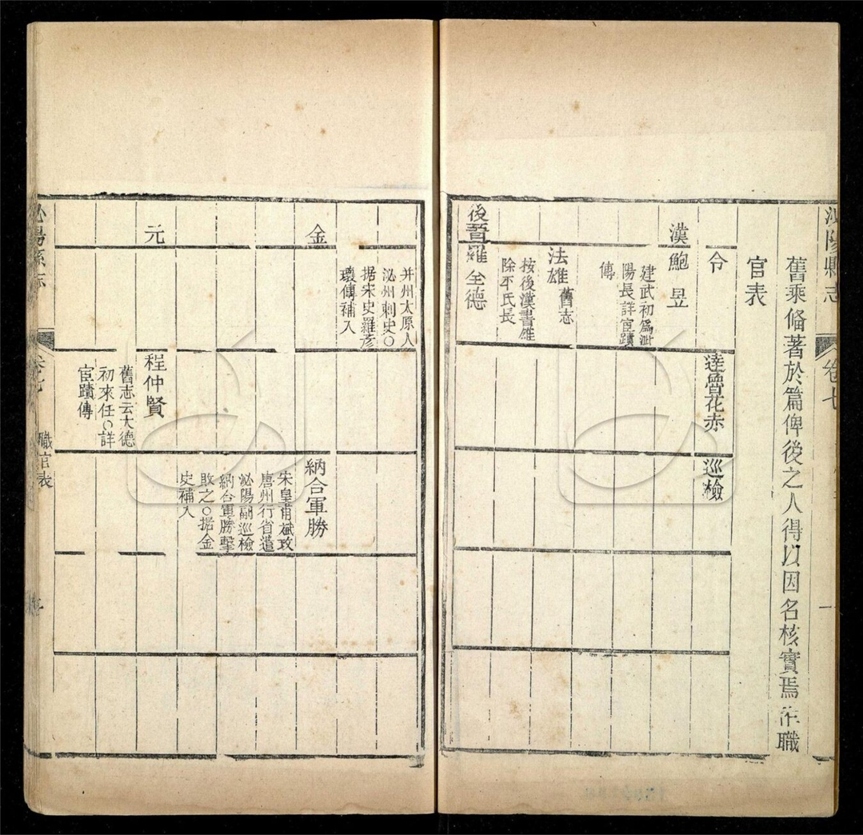 泌陽縣志
卷七
一
舊乘俻著於篇俾後之人得以因名核實焉作職
官表
令
達魯花赤
巡檢
漢
鮑昱
建武初爲沘
陽長詳宦蹟
傳
法雄
舊志
按後漢書雄
除平氏長
後晉
羅全德
并州太原人
泌州刺史○
据宋史羅彥
瓌傳補入
金
納合軍勝
宋皇甫斌攻
唐州行省遣
泌陽副巡檢
納合軍勝擊
敗之○据金
史補入
元
程仲賢
舊志云大德
初來任○詳
宦蹟傳
泌陽縣志
卷七
職官表